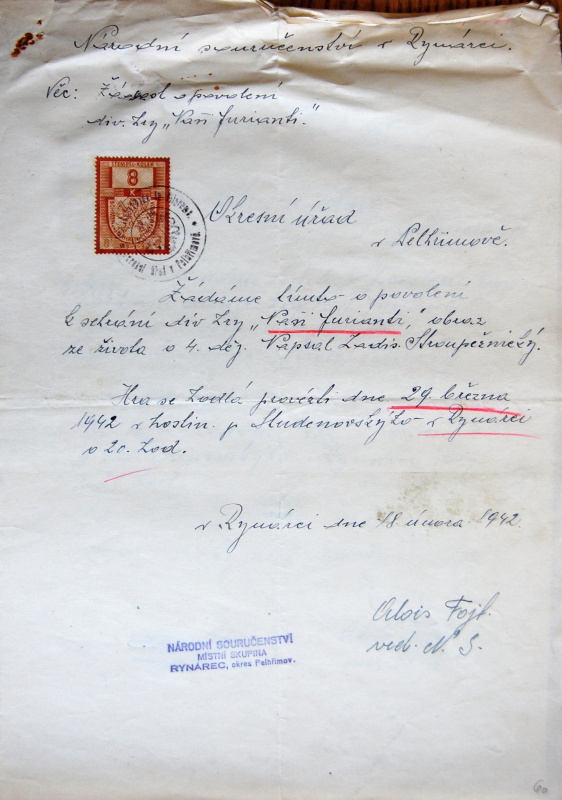 Národní souručenství v Rynárci.
Věc: Žádost o povolení
div. hry „Naši furianti."
STEMPEL-KOLEK
8
K
8
Okresní úřad
v Pelhřimově.
Žádáme tímto o povolení
k sehrání div. hry „Naši furianti", obraz
ze života o 4. děj. Napsal Ladis. Stroupežnický.
Hra se hodlá prováděti dne 29. března
1942 v hostin. p. Studenovského v Rynárci
o 20. hod.
v Rynárci dne 18 února 1942.
Alois Fojt.
ved. N. S.
NÁRODNÍ SOURUČENSTVÍ
MÍSTNÍ SKUPINA
RYNÁREC, okres Pelhřimov.
60